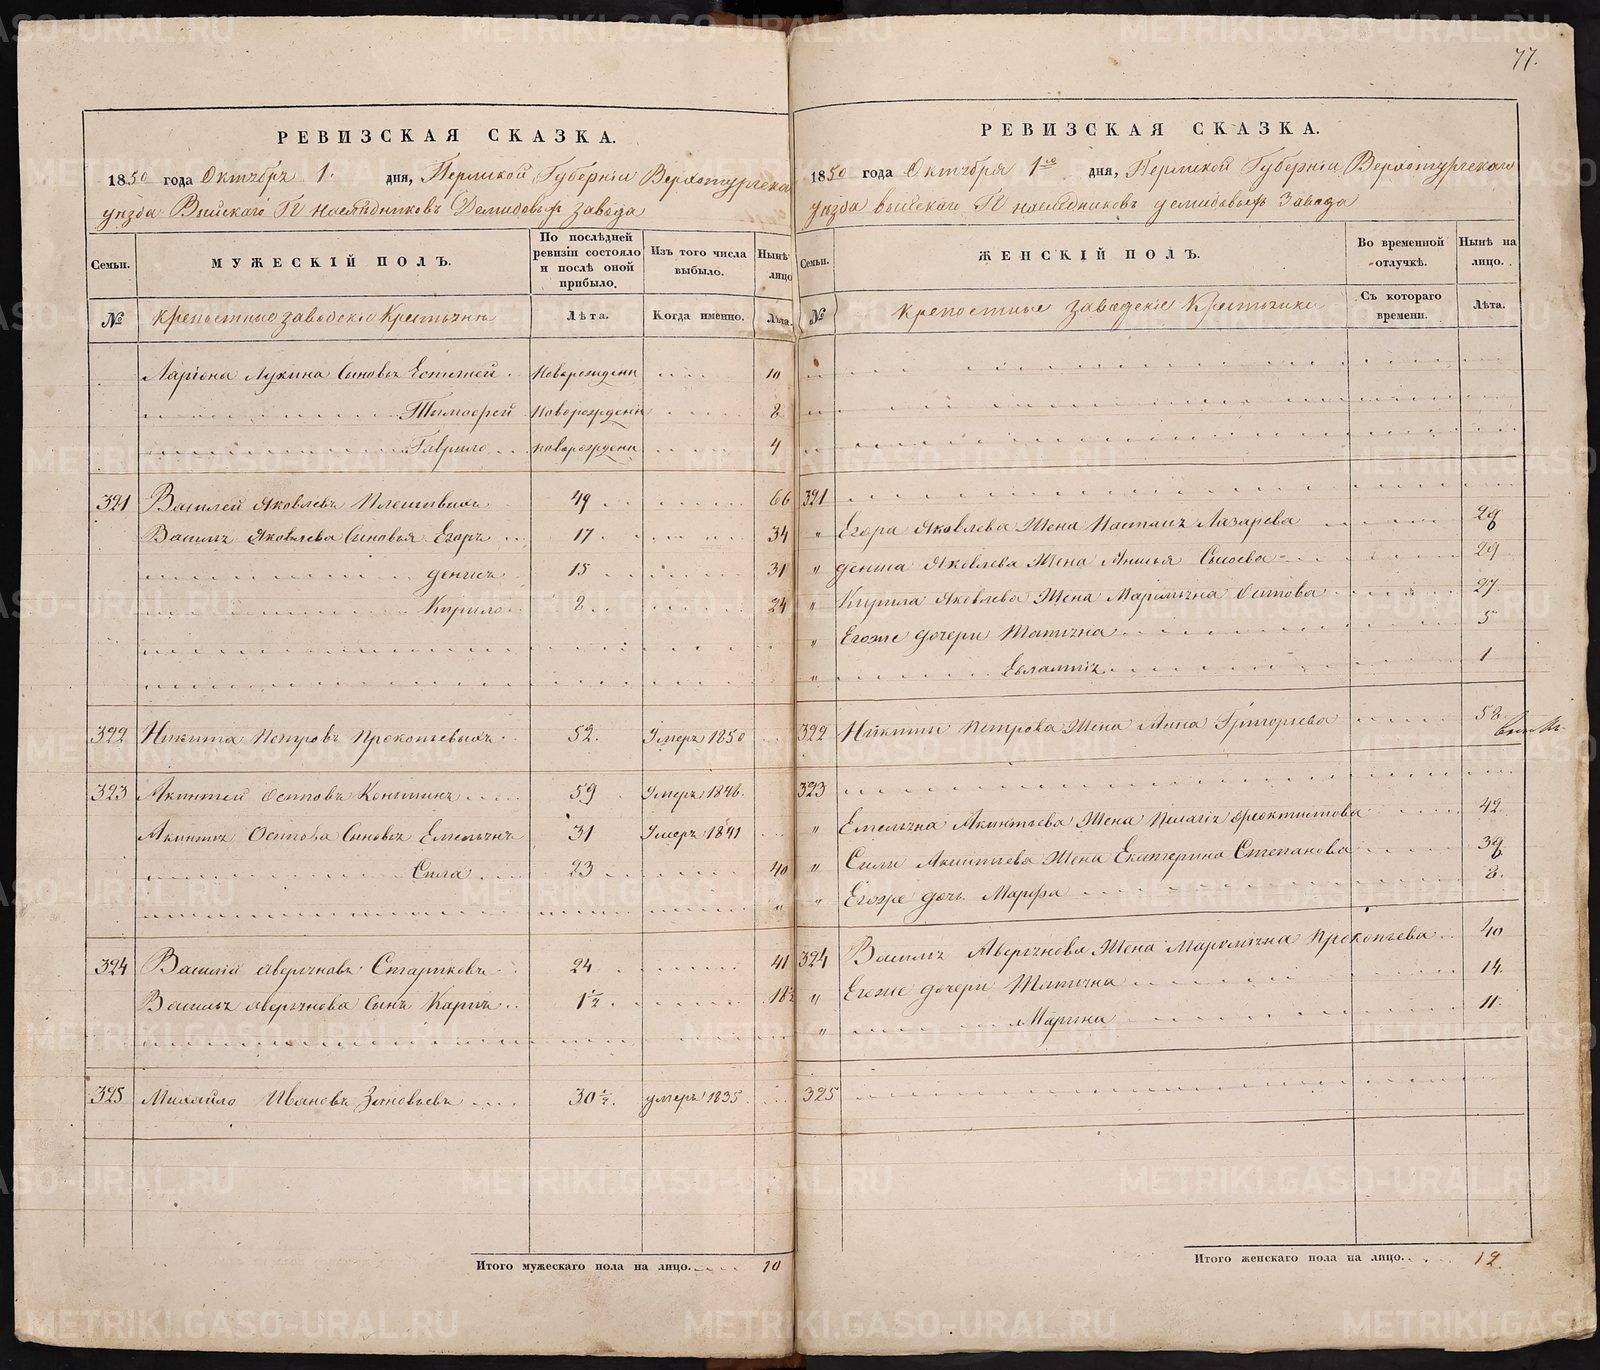 77.
РЕВИЗСКАЯ СКАЗКА.
1850 года Октябрь 1. дня, Пермской Губернiи Верхотурскаго
уѣзда Выйскаго Гг наслѣдниковъ Демидовыхъ завода
Семьи.
МУЖЕСКІЙ ПОЛЪ.
По послѣдней ревизіи состояло и послѣ оной прибыло.
Изъ того числа выбыло.
Нынѣ лицо
№
крепостные заводскiе Крестьянѣ
Лѣта.
Когда именно.
Лѣта.
Ларiона Лукина Сыновья Евгеней Новорожденн 10
Тимофей Новорожденн 8
Гаврило новорожденн 4
321 Василей Яковлевъ Плешивыхъ 49 66
Василья Яковлева Сыновья Егоръ 17 34
денисъ 15 31
Кирило 8 24
322 Никита Петровъ Прокопьевыхъ 52. Умеръ 1850
323 Акинтей Осиповъ 59 Умеръ 1846.
Акинтья Осипова Сыновья Емельянъ 31 Умеръ 1841
Сила 23 40
324 Василiй аверьяновъ Стариковъ 24 41
Василья аверьянова Сынъ Карпъ 1½ 18½
325 Михайло Ивановъ Зиновьевъ 30½ умеръ 1835
Итого мужескаго пола на лицо. 10
РЕВИЗСКАЯ СКАЗКА.
1850 года Октября 1го дня, Пермской Губернiи Верхотурскаго
уѣзда выйскаго Гг наслѣдниковъ демидовыхъ Завода
Семьи.
ЖЕНСКІЙ ПОЛЪ.
Во временной отлучкѣ.
Нынѣ на лицо.
№
крепостные заводскiе Крестьянки
Съ котораго времени.
Лѣта.
321
" Егора Яковлева Жена Настасья Лазарева 28
" дениса Яковлева Жена Анисья Сысоева 29
" Кирила Яковлева Жена Маремьяна Осипова 27
" Егоже дочери Татьяна 5
" Евлампiя 1
322 Никиты Петрова Жена Анна Григорьева 58
323
" Емельяна Акинтьева Жена Пелагiя Феоктистова 42
" Силы Акинтьева Жена Екатерина Степанова 38
" Егоже дочь Марфа 8.
324 Василья Аверьянова Жена Маремьяна Прокопьева 40
" Егоже дочери Татьяна 14.
" Марина 11.
325
Итого женскаго пола на лицо. 12.
METRIKI.GASO-URAL.RU